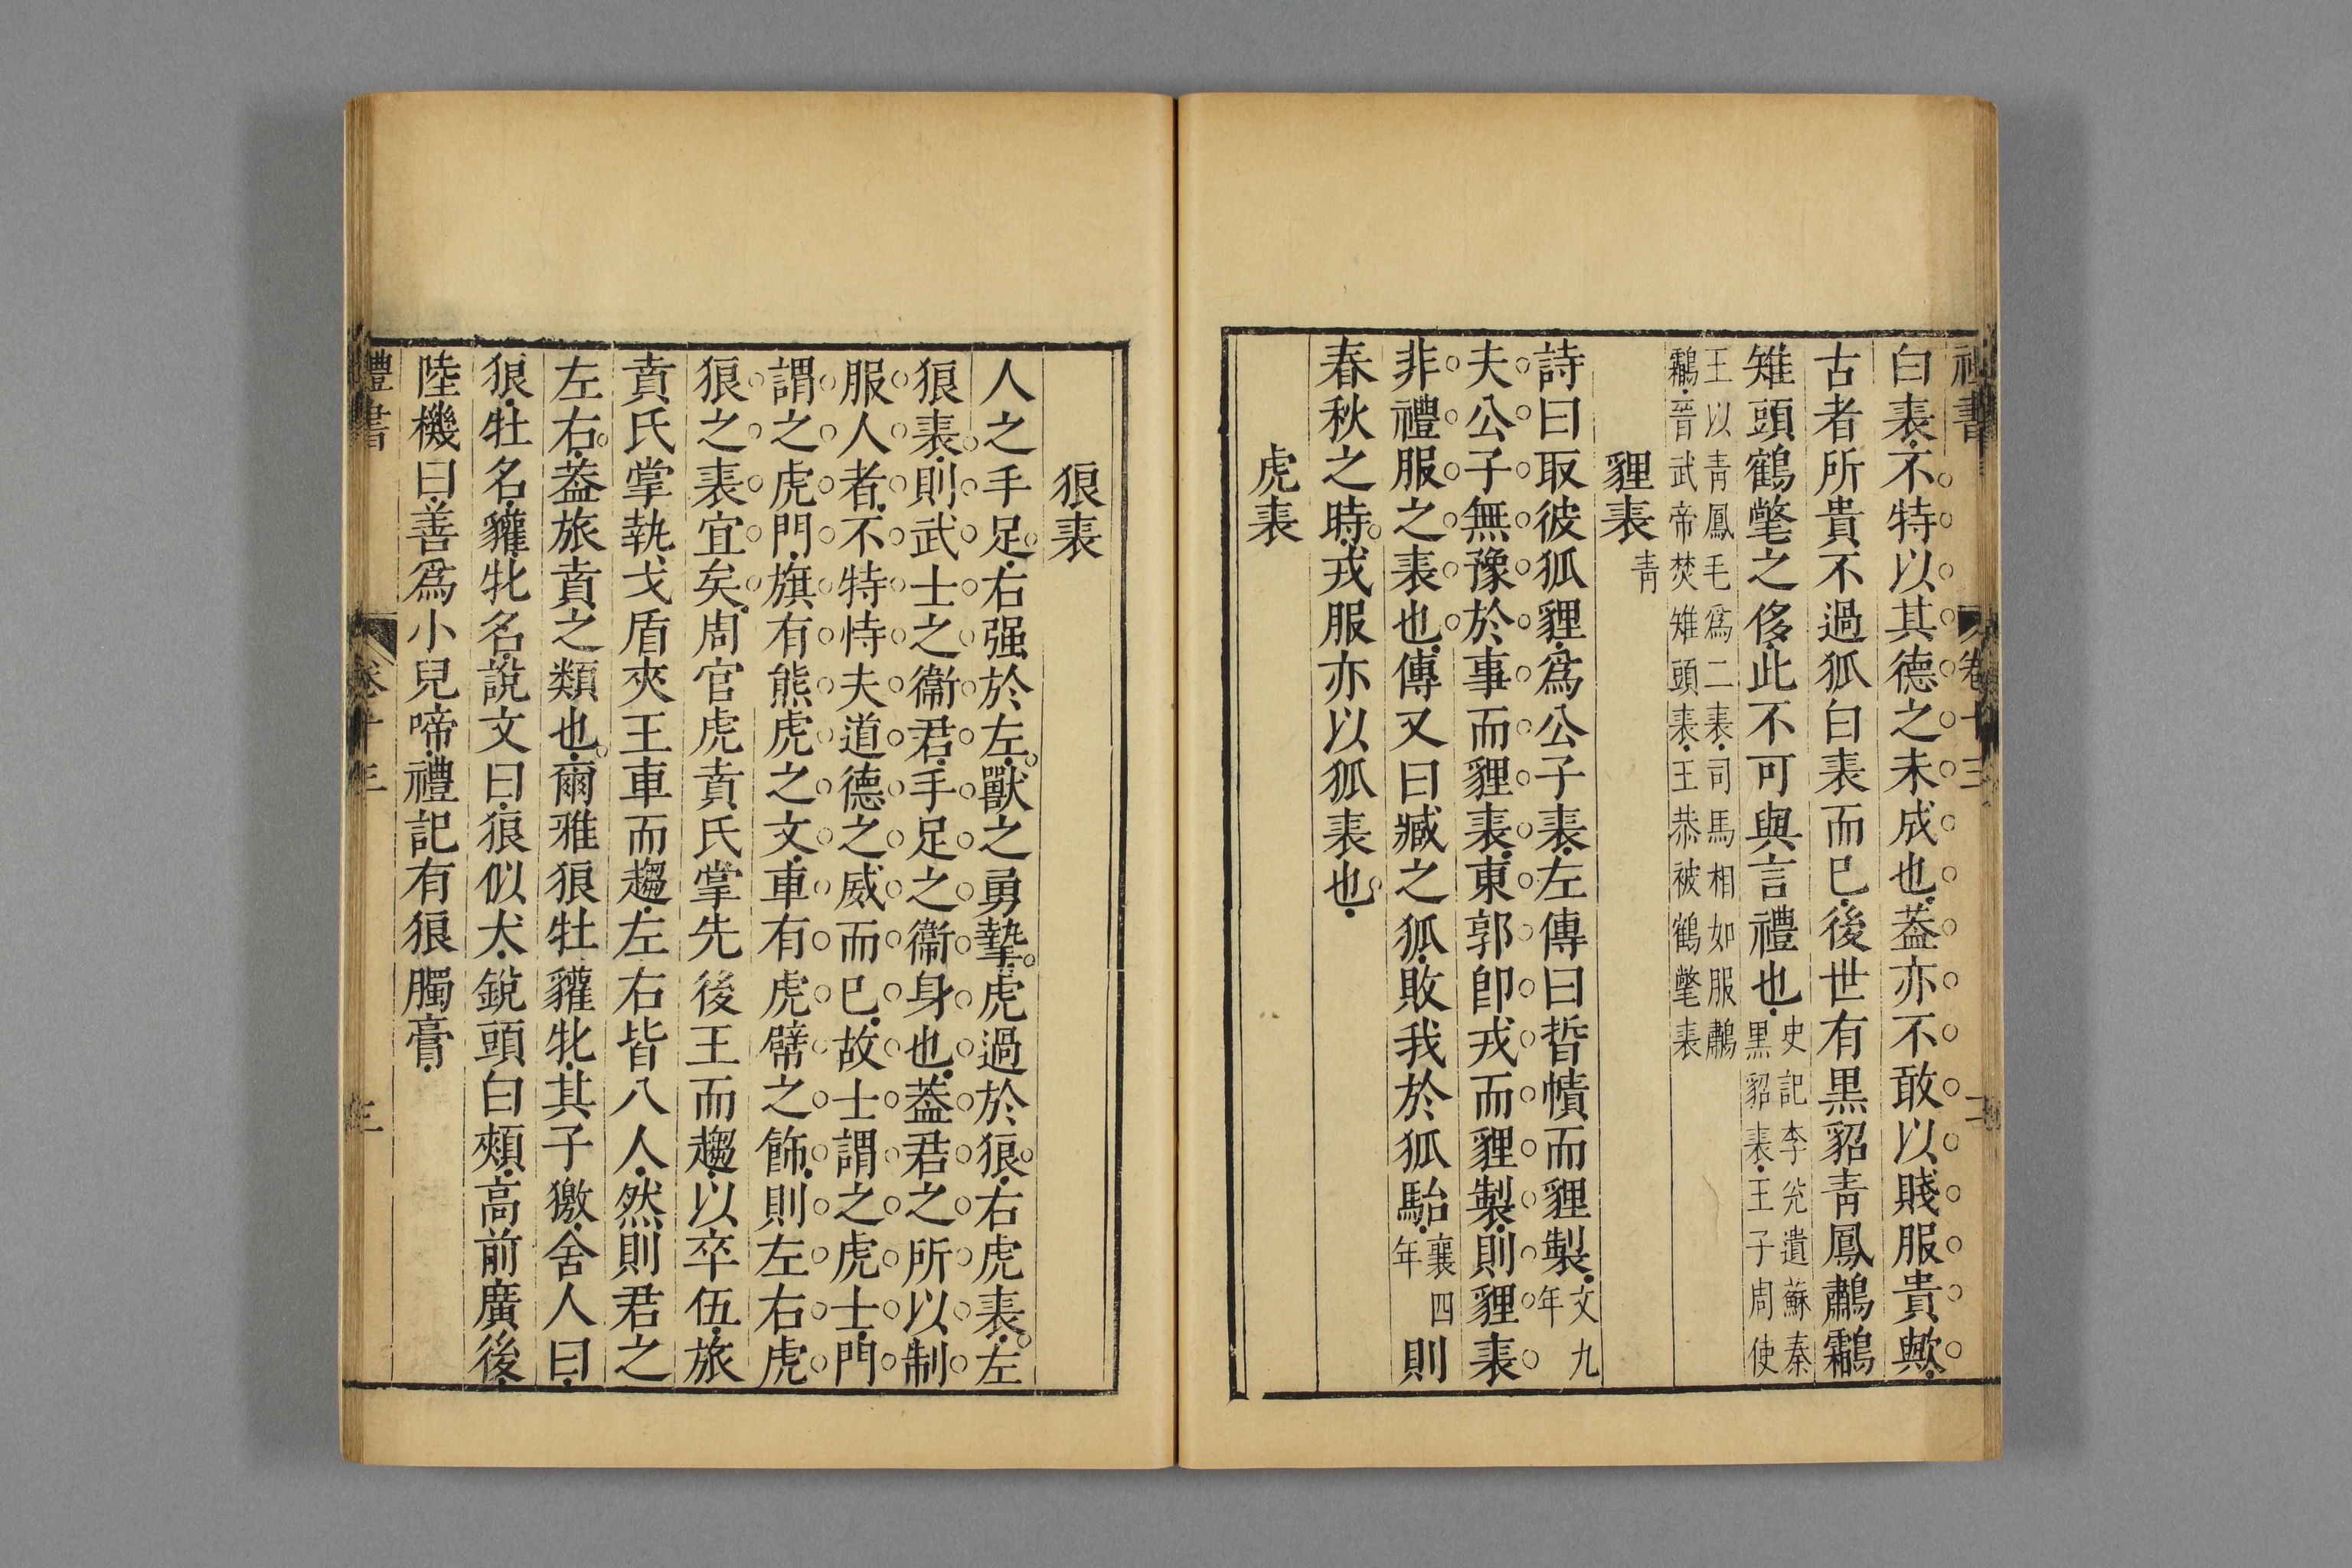 禮書 卷十三 二
白裘不特以其德之未成也葢亦不敢以賤服貴歟
古者所貴不過狐白裘而已後世有黒貂青鳳鷫鸘
雉頭鶴氅之侈此不可與言禮也史記李兊遺蘇秦黒貂裘王子周使
王以青鳳毛爲二裘司馬相如服鷫鸘晉武帝焚雉頭裘王恭被鶴氅裘
貍裘青
詩曰取彼狐貍爲公子裘左傳曰晳幘而貍製文九年
夫公子無豫於事而貍裘東郭卽戎而貍製則貍裘
非禮服之裘也傳又曰臧之狐敗我於狐駘襄四年則
春秋之時戎服亦以狐裘也
虎裘
狼裘
人之手足右强於左獸之勇摯虎過於狼右虎裘左
狼裘則武士之衞君手足之衞身也葢君之所以制
服人者不特恃夫道德之威而已故士謂之虎士門
謂之虎門旗有熊虎之文車有虎幦之飾則左右虎
狼之裘宜矣周官虎賁氏掌先後王而趨以卒伍旅
賁氏掌執戈盾夾王車而趨左右皆八人然則君之
左右葢旅賁之類也爾雅狼牡貛牝其子獥舍人曰
狼牡名貛牝名說文曰狼似犬銳頭白頰高前廣後
陸機曰善爲小兒啼禮記有狼臅膏
禮書 卷十三 三